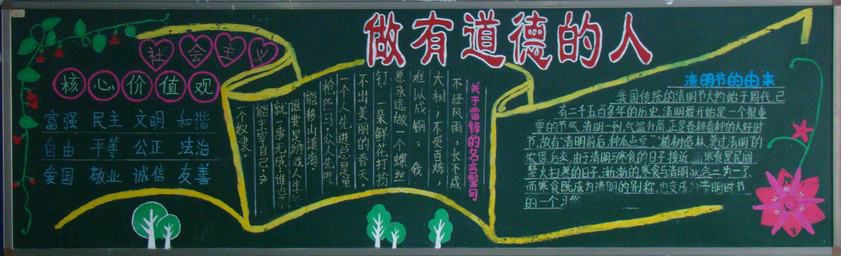 做有道德的人
社会主义
核心价值观
富强 民主 文明 和谐
自由 平等 公正 法治
爱国 敬业 诚信 友善
关于雷锋的名言警句
不经风雨，长不成
大树，不受百炼，
难以成钢。我
愿永远做一个螺丝
钉。一朵鲜花打扮
不出美丽的春天，
一个人先进总是单
枪匹马，众人先进
能移山填海。
谁要是游戏人生
就一事无成，谁
能主宰自己，
一个奴隶。
清明节的由来
我国传统的清明节大约始于周代，已
有二千五百多年的历史。清明最开始是一个很重
要的节气，清明一到，气温升高，正是春耕春种的大好时
节，故有“清明前后，种瓜点豆”“植树造林，莫过清明”的
农谚。后来，由于清明与寒食的日子接近，而寒食是民间
禁火扫墓的日子，渐渐的，寒食与清明就合二为一了，
而寒食既成为清明的别称，也变成为清明时节
的一个习俗